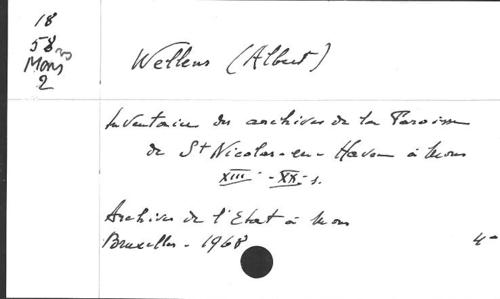 18
58
Mons
2
Wellens (Albert)
Inventaire des archives de la Paroisse
de St Nicolas-en-Havré à Mons
XIII - XX s.
Archives de l'Etat à Mons
Bruxelles - 1968
4°